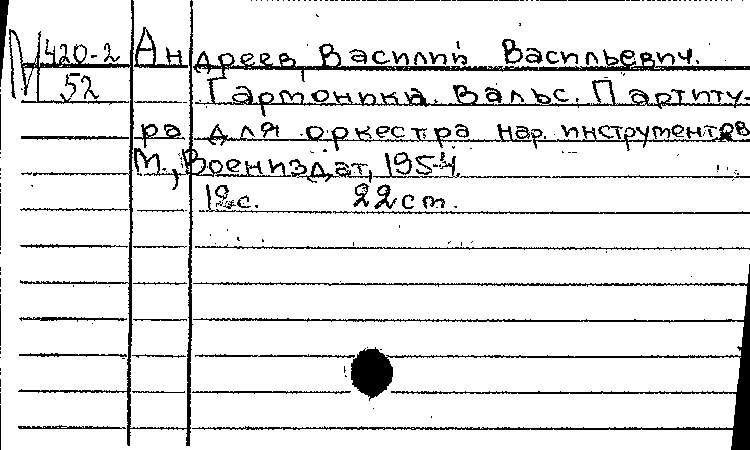 М 420-2 Андреев, Василий Васильевич.
52 Гармоника. Вальс. Партиту-
ра для оркестра нар. инструментов
М., Воениздат, 1954.
12с. 22 см.